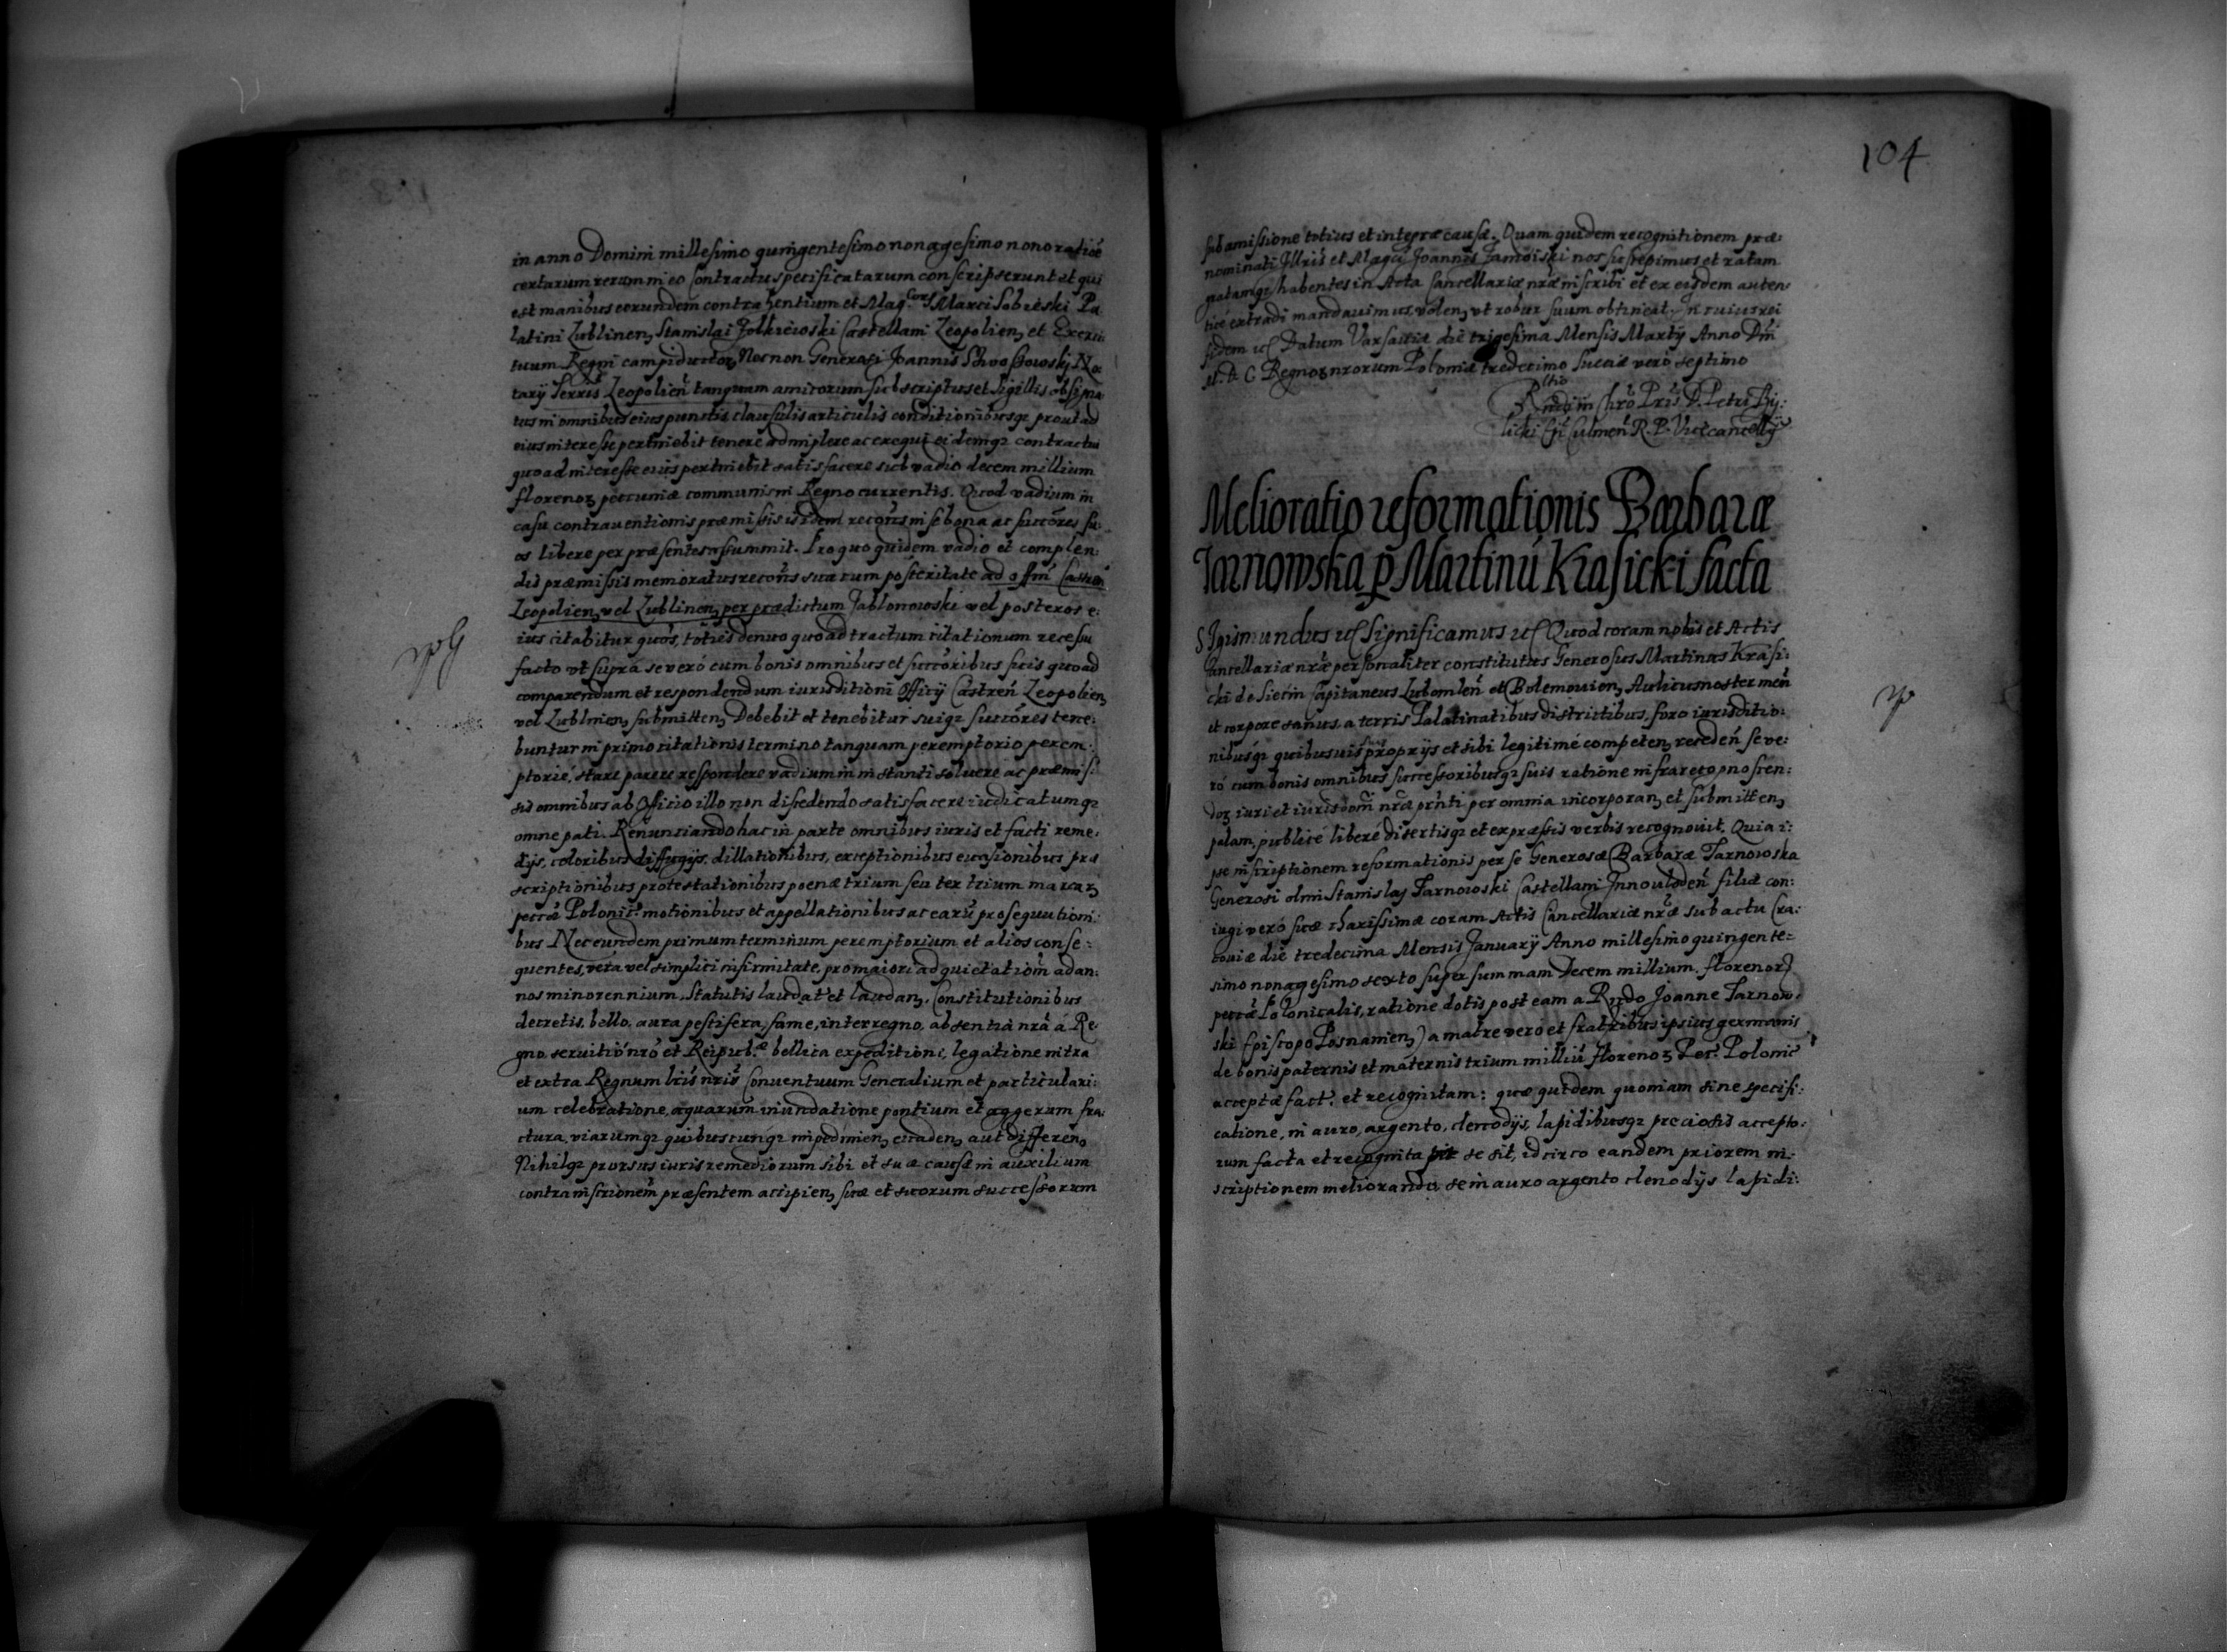 in anno Domini millesimo quingentesimo nonagesimo nono ratioē
certarum rerum in eo Contractu specificatarum conscripserunt et qui
est manibus eorundem contrahentium et Mag.corū Marci Sobieski Pa
latini Lublinen, Stanislai Zolkiewski Castellani Leopolien, et Exerci:
tuum Regni campiductor, Nec non Generosi Joannis No
tarij Terrīs Leopolien̄ tanquam amicorum subscriptus et Sigillis obsigna
tus in omnibus eius punctis clausulis articulis conditionibusq3 prout ad
eius interesse pertinebit tenere adimplere ac exequi eidemq3 contractui
quoad interesse eius pertinebit satisfacere sub vadio decem millium
florenoz pecuniæ communis in Regno currentis. Quod vadium in
casu contraventionis præmissis idem recōns in se bona ac succōres su:
os libere per præsentes assummit. Pro quo quidem vadio et complen:
dis præmissis memoratus recōns sua cum posteritate ad offm̄ Castren̄
Leopolien, vel Lublinen, per prædictum Jablonowski vel posteros e:
ius citabitur quōs, toties denuo quoad tractum citationum recessu
facto vt supra se veró cum bonis omnibus et succōribus suis quoad
comparendum et respondendum iurisditioni Officij Castren̄ Leopolien,
vel Lublinen, submitten, Debebit et tenebitur suiq3 succōres tene:
buntur in primo citationis termino tanquam peremptorio perem:
ptorié, stare parere respondere vadium in instanti soluere ac præmis:
sis omnibus ab Officio illo non discedendo satisfacere iudicatumq3
omne pati. Renunciando hac in parte omnibus iuris et facti reme:
dijs, coloribus diffugijs, dillationibus, exceptionibus euasionibus præ
scriptionibus protestationibus poenæ trium seu ter trium marcar,
peccǣ Polonic̄. motionibus et appellationibus ac earū prosequutioni:
bus Nec eundem primum terminum peremptorium et alios conse:
quentes, vera vel simplici infirmitate, pro maiori ad quietatiom̄ ad an:
nos minorennium. Statutis laudat̄ et laudan, Constitutionibus
decretis, bello, aura pestifera, fame, interregno, absentia nrā á Re:
gno, seruitió nrō et Reipub.æ bellica expeditione, legatione intra
et extra Regnum brīs nrīs Conuentuum Generalium et particulari:
um celebratione, aquarum inundatione pontium et aggerum fra:
ctura, viarumq3 quibuscunq3 impedimen, euaden, aut differen,
Nihilq3 prorsus iuris remediorum sibi et suæ causæ in auxilium
contra inscrionem̄ præsentem accipien, suæ et suorum successorum
104
sub amissione totius et integræ causæ. Quam quidem recognitionem præ:
nominati Illris̄ et Magci Joannis Zamoiski nos suscepimus et ratam
gratamq3 habentes in Acta Cancellariæ nrǣ inscribi et ex eisdem auten:
ticé extradi mandauimus volen, vt robur suum obtineat. In cuius rei
fidem ec̄ Datum Varsauiæ die trigesima Mensis Martij Anno Dni
M. D. C. Regnoz nrorum Poloniæ tredecimo Sueciæ vero septimo
Rltio
Rndi in Chrō Prīs D. Petri Tÿ:
licki Epī Culmen̄ R. P. Vicecancellij
Melioratio reformationis Barbaræ
Tarnowska p Martinū Krasicki facta
SIgismundus ec̄ Significamus ec̄ Quod coram nobis et Actis
Cancellariæ nrǣ personaliter constitutus Generosus Martinus Krasi:
cki de Siecin Capitaneus Lubomlen̄ et Bolemouien, Aulicus noster men̄
et corpore sanus, a terris Palatinatibus districtibus, foro iurisditio:
nibusq3 quibusuis suis proprijs et sibi legitimé competen, receden̄ se ve:
ró cum bonis omnibus successoribusq3 suis ratione infra recognoscen:
doz iuri et iurisdoni nrǣ prn̄ti per omnia incorporan, et submitten,
palam, publicé liberé disertisq3 et expressis verbis recognouit. Quia i:
pse inscriptionem reformationis per se Generosæ Barbaræ Tarnowska
Generosi olim Stanislaj Tarnowski Castellani Innowloden̄ filiæ con:
iugi veró suæ charissimæ coram Actis Cancellariæ nrǣ sub actu Cra:
couiæ die tredecima Mensis Januarij Anno millesimo quingente:
simo nonagesimo sexto super summam Decem millium. florenorz
peccǣ Polonicalis, ratione dotis post eam a Rndo Joanne Tarnow:
ski Episcopo Posnamien,) a matre veró et fratribus ipsius germanis
de bonis paternis et maternis trium milliū florenoz Pec. Polonic̄
acceptæ fact. et recognitam: quæ quidem quoniam sine specifi:
catione, in auro, argento, clenodijs, lapidibusq3 preciosis accepto:
rum facta et recognita se sit, idcirco eandem priorem in:
scriptionem meliorando, se in auro argento clenodijs lapidi: